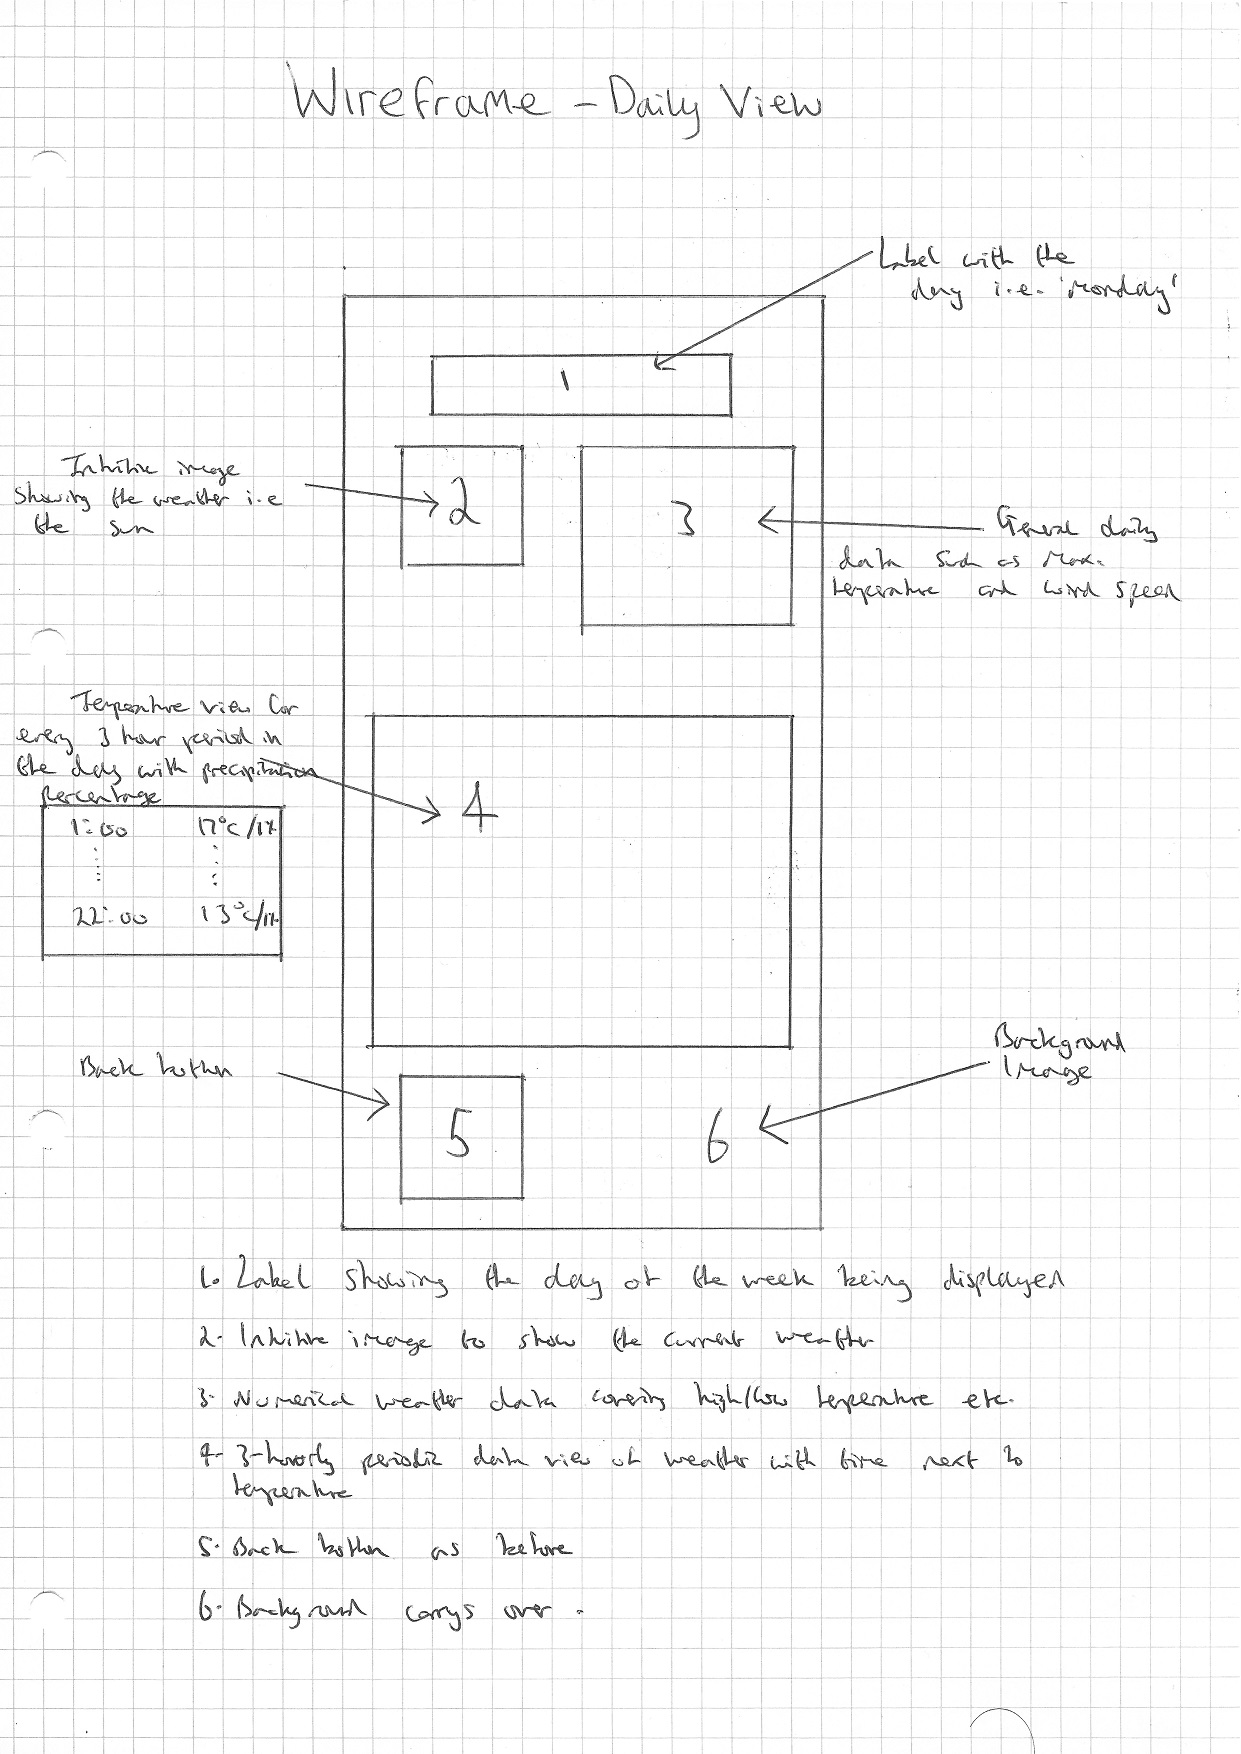 Wireframe - Daily View
Label with the
day i.e. 'Monday'
1
Intuitive image
showing the weather i.e
the sun
2
3
General daily
data such as Max.
temperature and wind speed
Temperature view for
every 3 hour period in
the day with precipitation
percentage
4
1:00 17°C/1%
22:00 13°C/1%
Back button
5
Background
Image
6
1. Label showing the day of the week being displayed
2. Intuitive image to show the current weather
3. Numerical weather data covering high/low temperature etc.
4- 3-hourly periodic data view of weather with time next to
temperature
5. Back button as before
6. Background carrys over.